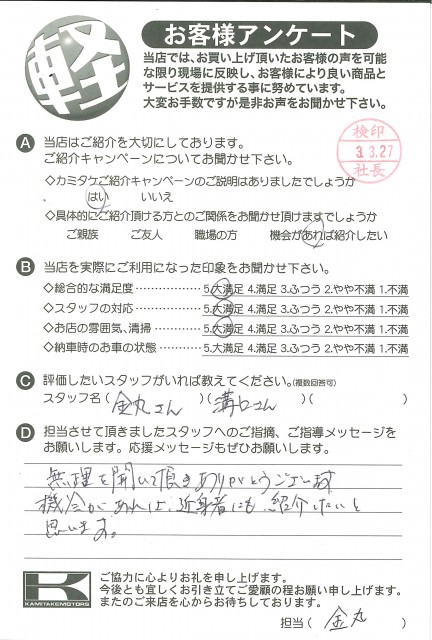 軽
お客様アンケート
当店では、お買い上げ頂いたお客様の声を可能
な限り現場に反映し、お客様により良い商品と
サービスを提供する事に努めています。
大変お手数ですが是非お声をお聞かせ下さい。
検印
3.3.27
社長
A 当店はご紹介を大切にしております。
ご紹介キャンペーンについてお聞かせ下さい。
◇カミタケご紹介キャンペーンのご説明はありましたでしょうか
はい いいえ
◇具体的にご紹介頂ける方とのご関係をお聞かせ頂けますでしょうか
ご親族 ご友人 職場の方 機会があれば紹介したい
B 当店を実際にご利用になった印象をお聞かせ下さい。
◇総合的な満足度 5.大満足 4.満足 3.ふつう 2.やや不満 1.不満
◇スタッフの対応 5.大満足 4.満足 3.ふつう 2.やや不満 1.不満
◇お店の雰囲気、清掃 5.大満足 4.満足 3.ふつう 2.やや不満 1.不満
◇納車時のお車の状態 5.大満足 4.満足 3.ふつう 2.やや不満 1.不満
C 評価したいスタッフがいれば教えてください。(複数回答可)
スタッフ名(金丸さん)(溝口さん)( )
D 担当させて頂きましたスタッフへのご指摘、ご指導メッセージを
お願いします。応援メッセージもぜひお願いします。
無理を聞いて頂きありがとうございます
機会があれば、近身者にも紹介したいと
思います。
K
KAMITAKE MOTORS
ご協力に心よりお礼を申し上げます。
今後とも宜しくお引き立てご愛顧の程お願い申し上げます。
またのご来店を心からお待ちしております。
担当(金丸)